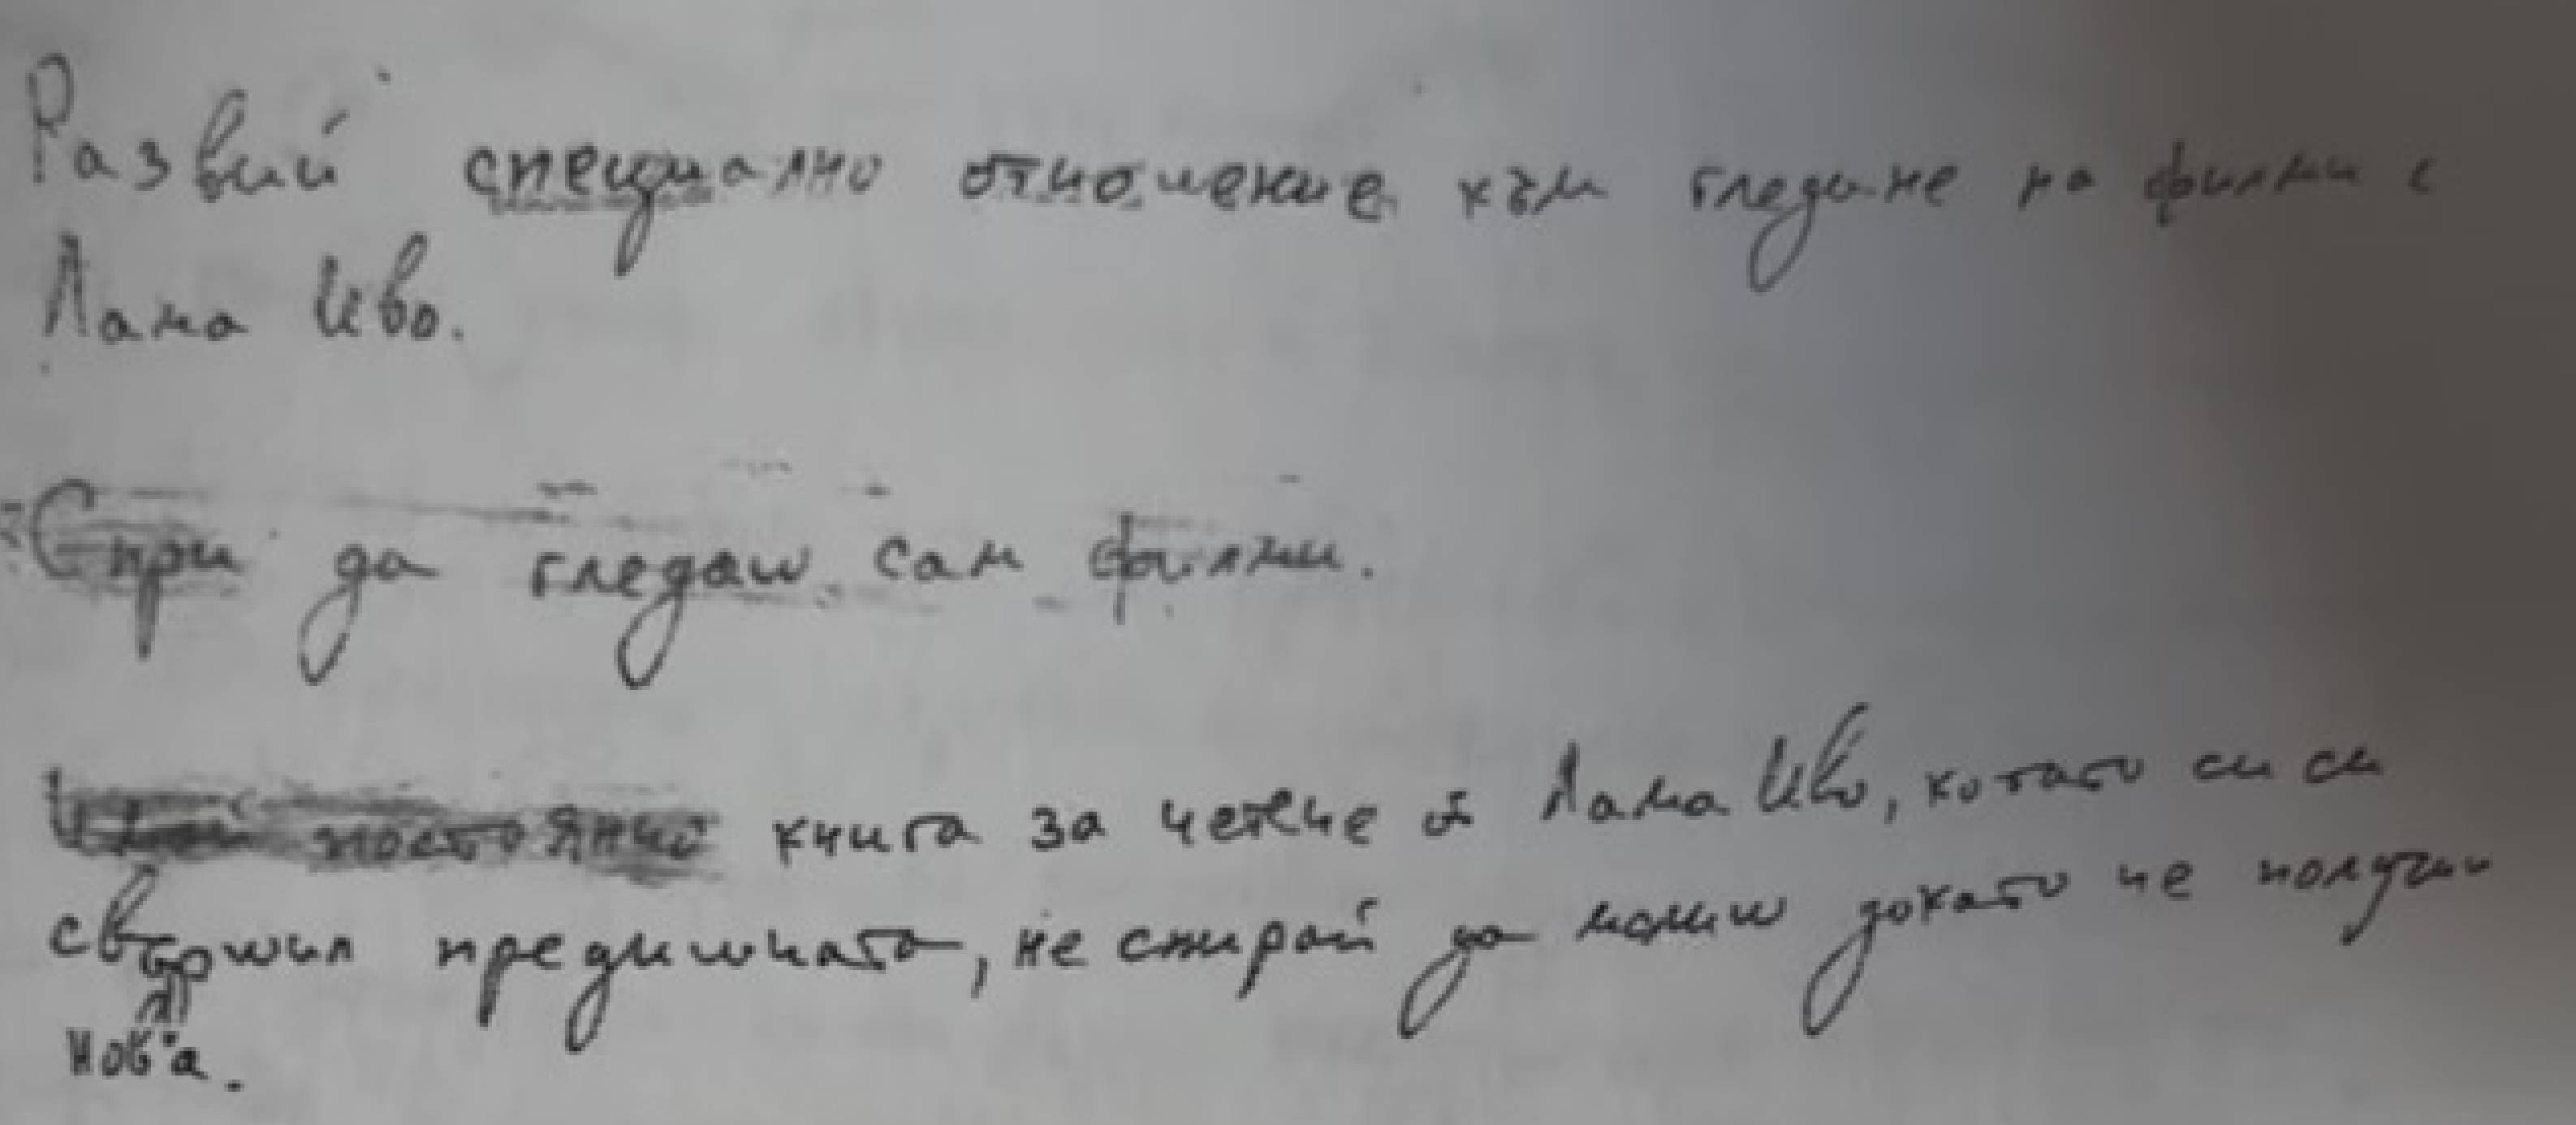 Развий специално отношение към гледане на филми с
Лама Иво.
Спри да гледаш сам филми.
постоянно книга за четене от Лама Иво, когато си си
свършил предишната, не спирай да молиш докато не получиш
нова.